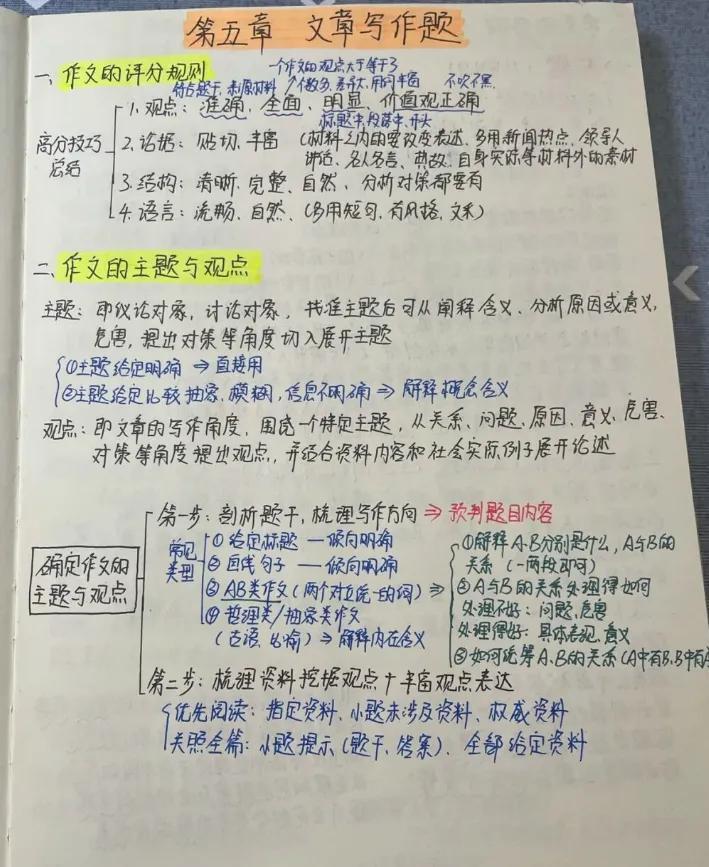 第五章 文章写作题
一、作文的评分规则
一个作文的观点大于等于3
符合题干,来源材料 个数多,差异大,用词丰富 不吹不黑
高分技巧总结
1. 观点:准确、全面、明显、价值观正确
标题中,段落中,开头
2. 论据:贴切、丰富 (材料之内的要改变表达、多用新闻热点、领导人
讲话、名人名言、典故、自身实际等材料外的素材
3. 结构:清晰、完整、自然、分析对策都要有
4. 语言:流畅、自然、(多用短句,有风格,文采)
二、作文的主题与观点
主题:即议论对象,讨论对象,找准主题后可从阐释含义、分析原因或意义,
危害,提出对策等角度切入展开主题
①主题给定明确 ⇒ 直接用
②主题给定比较抽象、模糊,信息不明确 ⇒ 解释概念含义
观点:即文章的写作角度,围绕一个特定主题,从关系、问题、原因、意义、危害、
对策等角度提出观点,并结合资料内容和社会实际例子展开论述
确定作文的
主题与观点
第一步:剖析题干,梳理写作方向 ⇒ 预判题目内容
常见
类型
① 给定标题 — 倾向明确
② 画线句子 — 倾向明确
③ AB类作文(两个对立统一的词) ⇒
④ 哲理类/抽象类作文
(古语、比喻) ⇒ 解释内在含义
①解释A、B分别是什么,A与B的
关系(一两段即可)
②A与B的关系处理得如何
处理不好:问题,危害
处理得好:具体表现、意义
③如何统筹A、B的关系(A中有B,B中有A
第二步:梳理资料挖掘观点+丰富观点表达
优先阅读:指定资料、小题未涉及资料、权威资料
关照全篇:小题提示(题干、答案)、全部给定资料